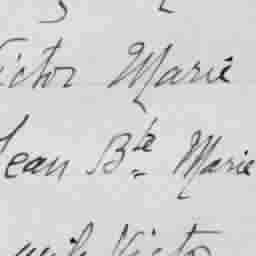 Victor Marie
Jean Bte Marie
Victor